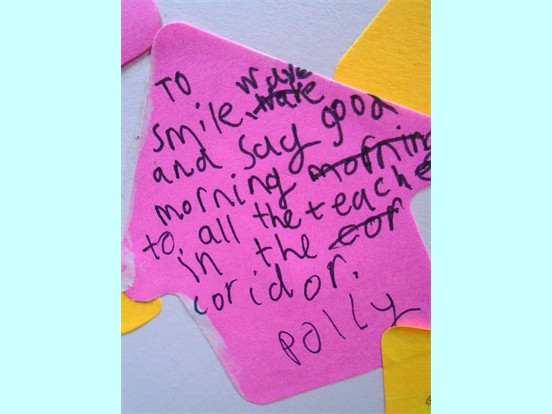 TO
smile, wave
and say good
morning
to all the teache
in the
coridor.
Polly